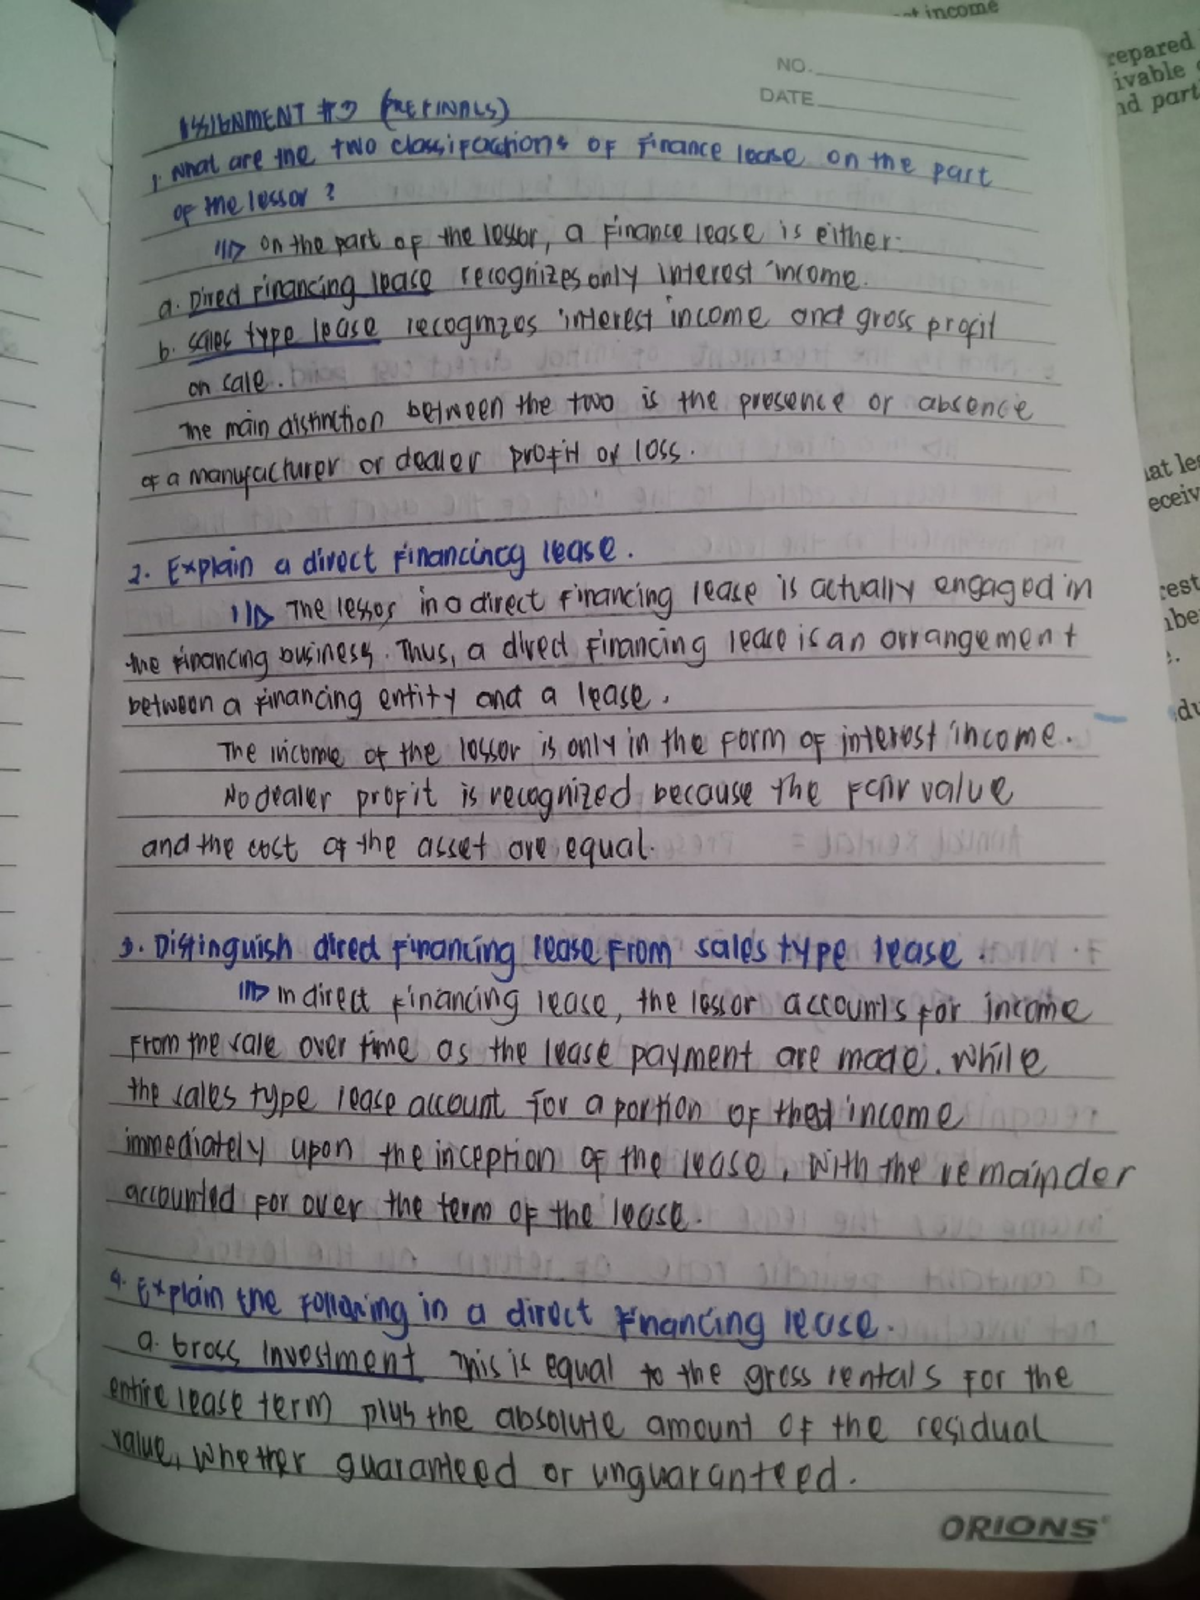 NO.
DATE
ASSIGNMENT #3 (PREFINALS)
1. What are the two classifications of Finance lease on the part
of the lessor?
on the part of the lessor, a Finance lease is either:
a. Direct Financing lease recognizes only interest income.
b. sales type lease recognizes interest income and gross profit
on sale.
The main distinction between the two is the presence or absence
of a manufacturer or dealer profit or loss.
2. Explain a direct Financincg lease.
The lessor in a direct Financing lease is actually engaged in
the Financing business. Thus, a direct Financing lease is an arrangement
between a Financing entity and a lease.
The income of the lessor is only in the form of interest income.
No dealer profit is recognized because the Fair value
and the cost of the asset are equal.
3. Distinguish direct Financing lease From sales type lease.
In direct Financing lease, the lessor accounts for income
From the sale over time as the lease payment are made. While
the sales type lease account for a portion of that income
immediately upon the inception of the lease, with the remainder
accounted For over the term of the lease.
4. Explain the Following in a direct Financing lease.
a. Gross Investment This is equal to the gross rentals For the
entire lease term plus the absolute amount of the residual
value, whether guaranteed or unguaranteed.
ORIONS
income
repared
ivable
nd part
at les
eceiv
rest